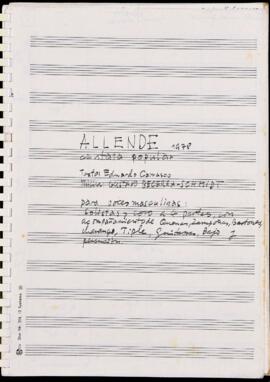 ALLENDE 1978
cantata popular
Texto: Eduardo Carrasco
Música: GUSTAVO BECERRA-SCHMIDT
para voces masculinas:
solistas y coro a 4 partes, con
acompañamiento de Quenas, zampoñas, bastones,
charango, Tiple, Guitarras, Bajo y
percusión.